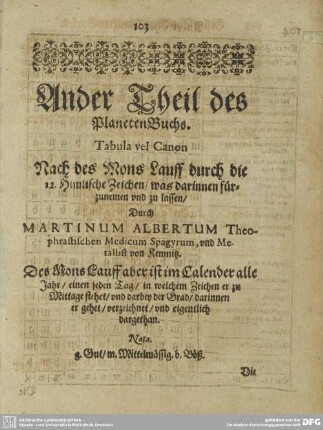 103
Ander Theil des
PlanetenBuchs.
Tabula vel Canon
Nach des Mons Lauff durch die
12. Himlische Zeichen/ was darinnen für-
zunemen vnd zu lassen/
Durch
MARTINUM ALBERTUM Theo-
phrastischen Medicum Spagyrum, vnd Me-
tallist von Kemnitz.
Des Mons Lauff aber ist im Calender alle
Jahr/ einen jeden Tag/ in welchem Zeichen er zu
Mittage stehet/ vnd darbey der Grad/ darinnen
er gehet/ verzeichnet/ vnd eigentlich
dargethan.
Nota.
g. Gut/ m. Mittelmässig. b. Böß.
Die